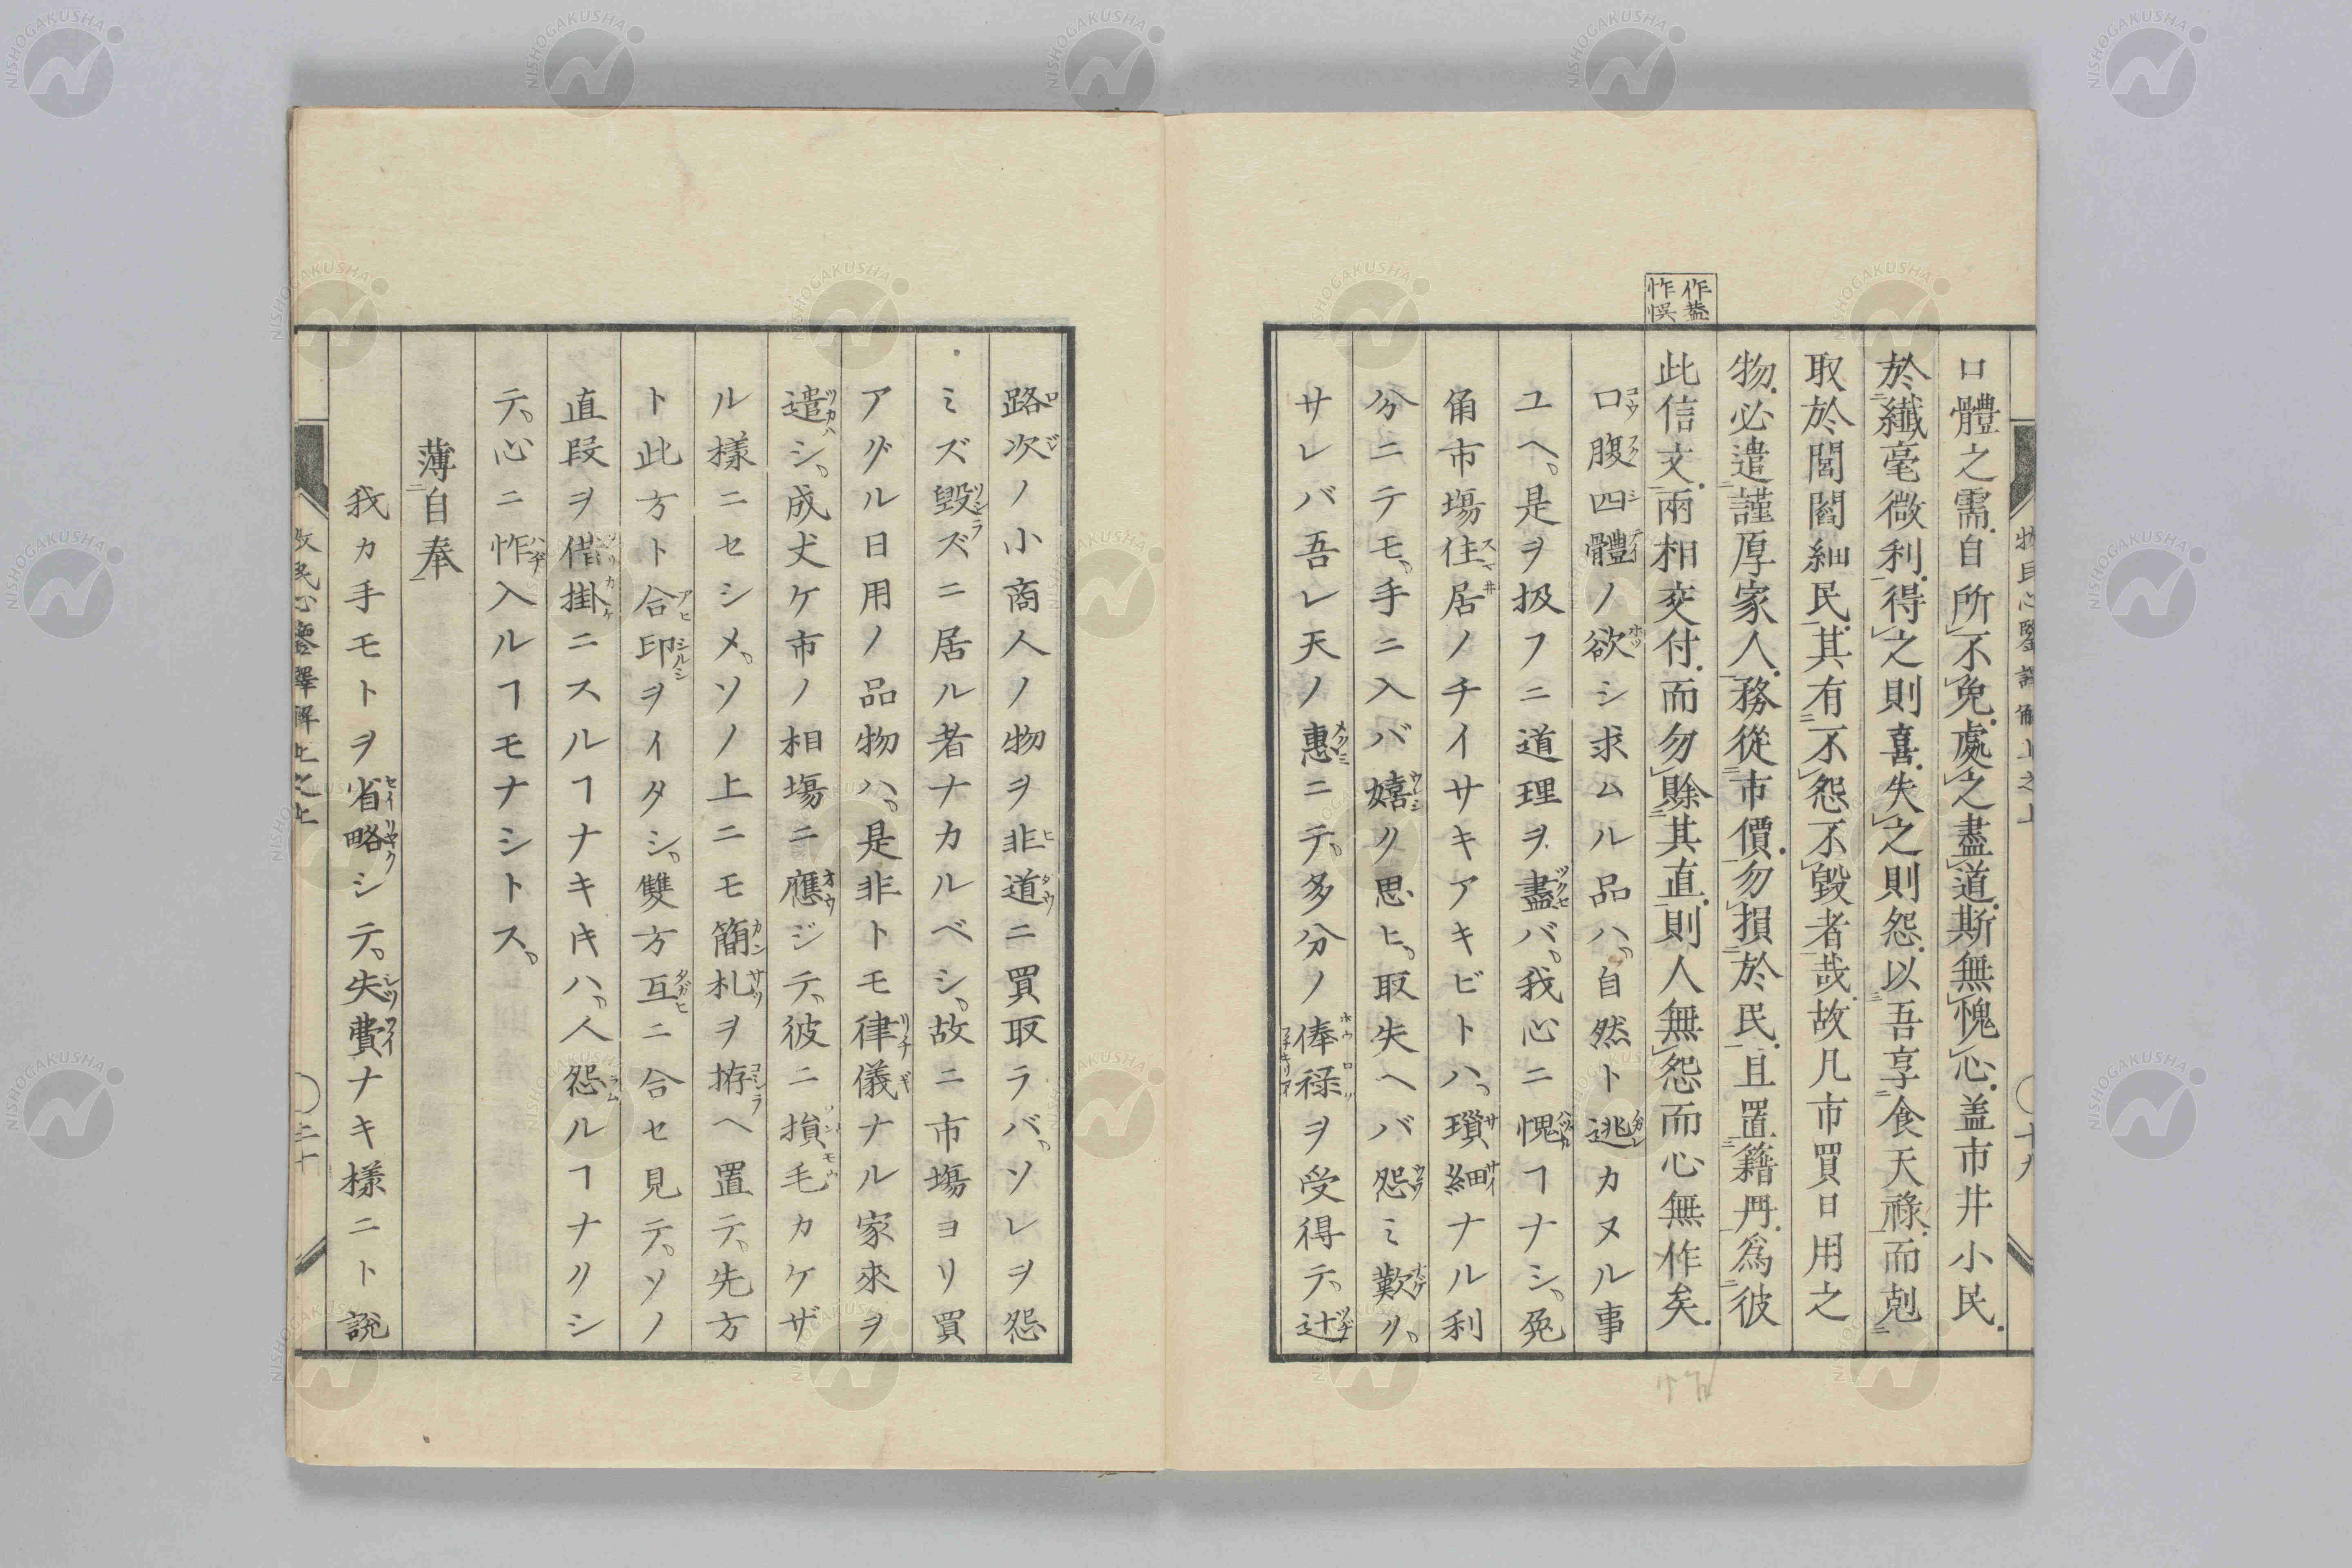 作蓋
怍悞
口體之需自所不免處之盡道斯無愧心盖市井小民
於纎毫微利得之則喜失之則怨以吾享食天祿而剋
取於閭閻細民其有不怨不毀者哉故凡市買日用之
物必遣謹厚家人務從市價勿損於民且置籍冊爲彼
此信文兩相交付而勿賖其直則人無怨而心無作矣
口腹四體ノ欲シ求ムル品ハ自然ト逃カヌル事
ユヘ是ヲ扱フニ道理ヲ盡バ我心ニ愧ヿナシ凭
角市塲住居ノチイサキアキビトハ瑣細ナル利
分ニテモ手ニ入バ嬉ク思ヒ取失ヘバ怨ミ歎ク
サレバ吾レ天ノ惠ニテ多分ノ俸禄ヲ受得テ辻
路次ノ小商人ノ物ヲ非道ニ買取ラバソレヲ怨
ミズ毀ズニ居ル者ナカルベシ故ニ市塲ヨリ買
アグル日用ノ品物ハ是非トモ律儀ナル家來ヲ
遣シ成丈ケ市ノ相塲ニ應ジテ彼ニ損毛カケザ
ル樣ニセシメソノ上ニモ簡札ヲ拵ヘ置テ先方
ト此方ト合印ヲイタシ雙方互ニ合セ見テソノ
直段ヲ借掛ニスルヿナキ片ハ人怨ルヿナクシ
テ心ニ怍入ルヿモナシトス
薄自奉
我カ手モトヲ省略シテ失費ナキ樣ニト説
牧民心鑒譯解上之上
二十
NISHOGAKUSHA